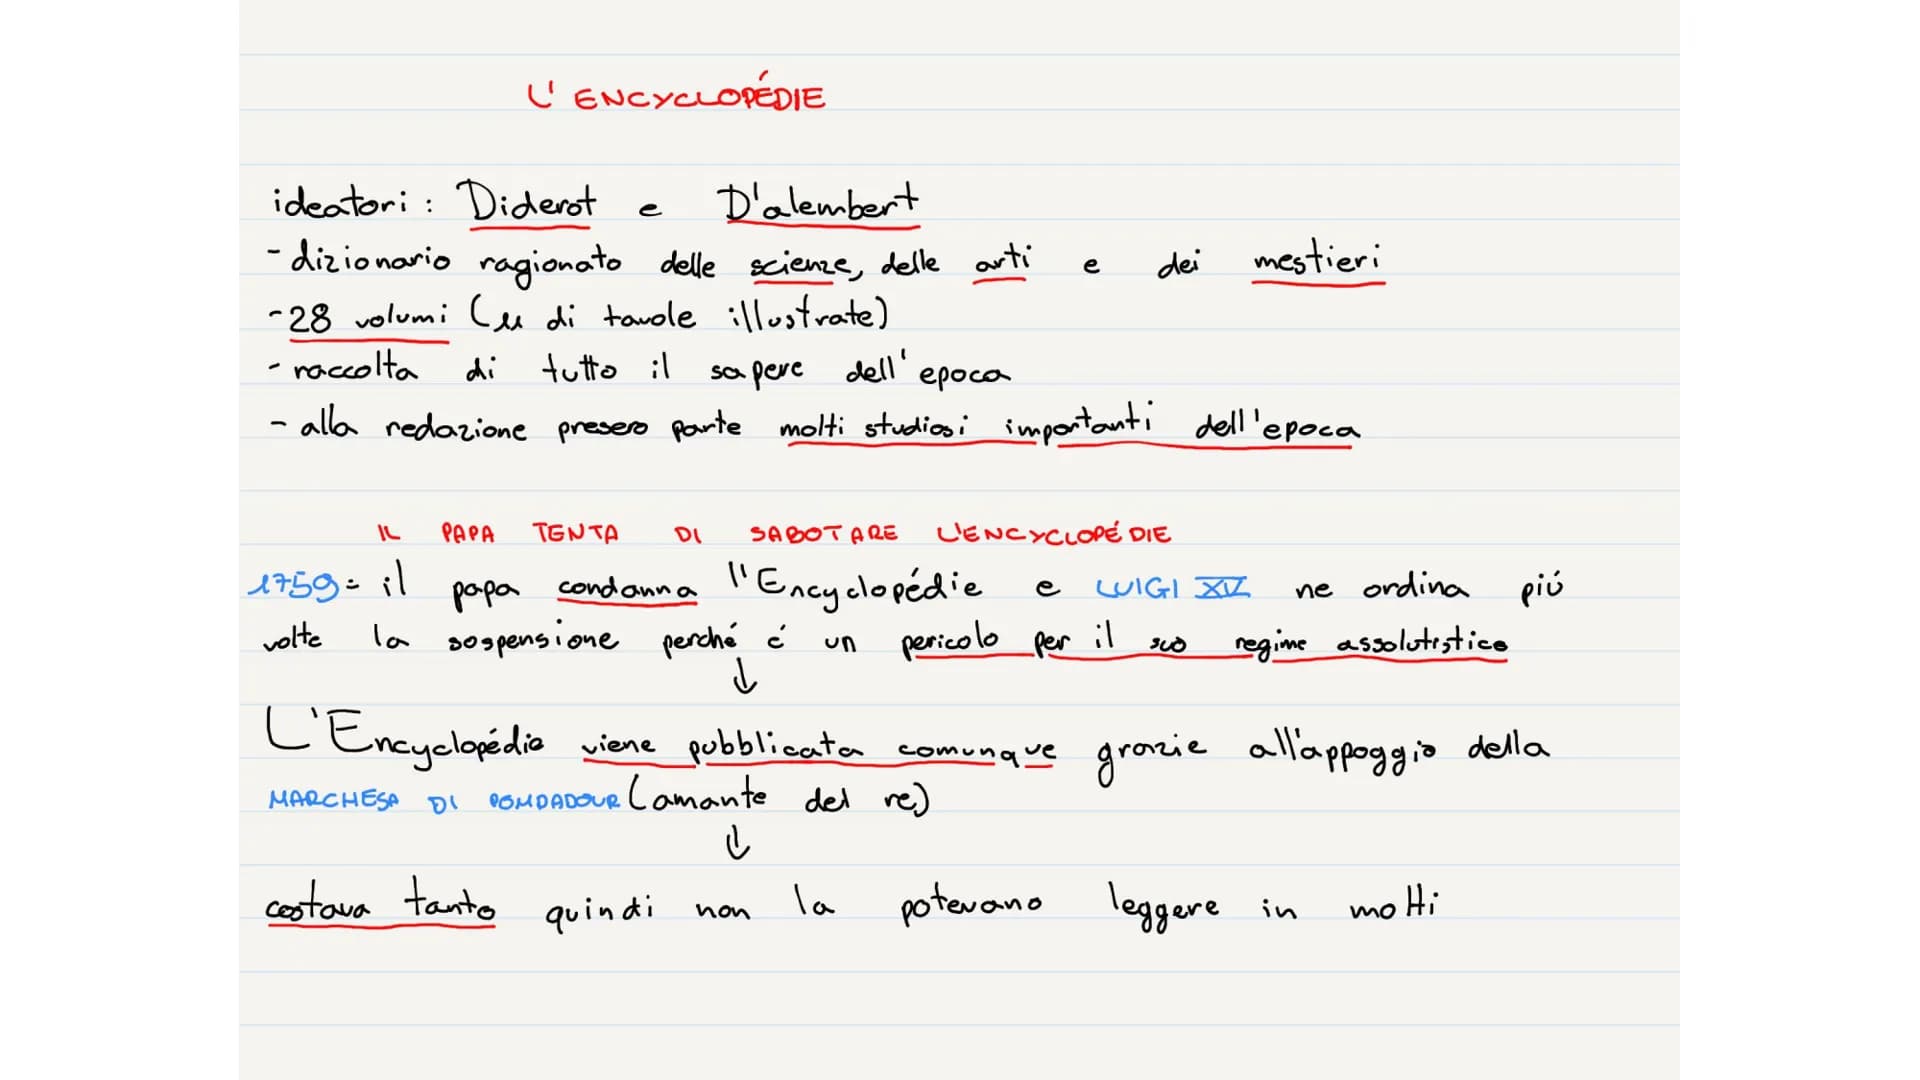 L'ENCYCLOPÉDIE
ideatori: Diderot e D'alembert
- dizionario ragionato delle scienze, delle arti e dei mestieri
- 28 volumi (11 di tavole illustrate)
- raccolta di tutto il sapere dell'epoca
- alla redazione presero parte molti studiosi importanti dell'epoca
IL PAPA TENTA DI SABOTARE L'ENCYCLOPÉDIE
1759= il papa condanna l'Encyclopédie e LUIGI XV ne ordina piú
volte la sospensione perché é un pericolo per il suo regime assolutistico
↓
L'Encyclopédie viene pubblicata comunque grazie all'appoggio della
MARCHESA DI POMPADOUR (amante del re)
↓
costava tanto quindi non la potevano leggere in molti